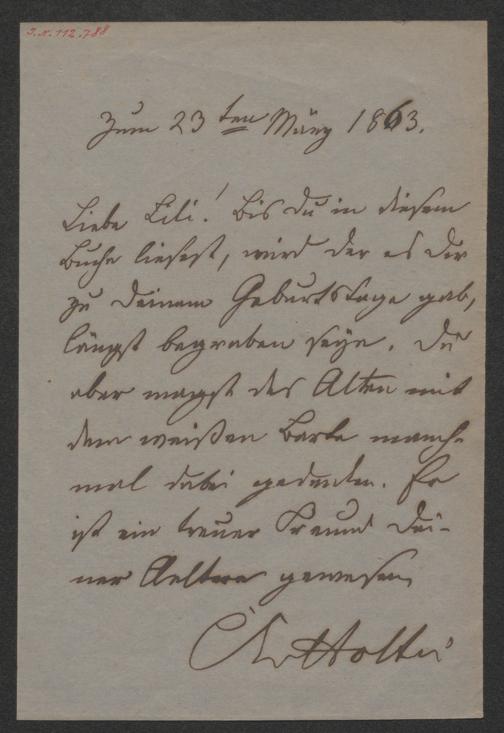 J.N. 112.788
Zum 23ten März 1863.
Liebe Lili! Bis du in diesem
Buche liesest, wird der es Dir
zu Deinem Geburtstage gab,
längst begraben seyn. Du
aber magst des Alten mit
dem weißen Barte manch-
mal dabei gedenken. Er
ist ein treuer Freund Dei-
ner Aeltern gewesen
Holtei